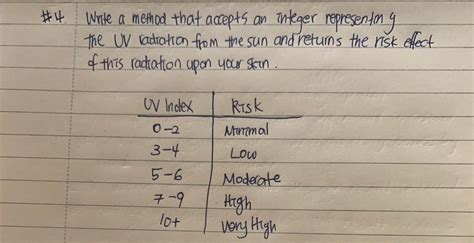 #4 Write a method that accepts an integer representing
the UV radiation from the sun and returns the risk effect
of this radiation upon your skin.
UV Index Risk
0-2 Minimal
3-4 Low
5-6 Moderate
7-9 High
10+ Very High